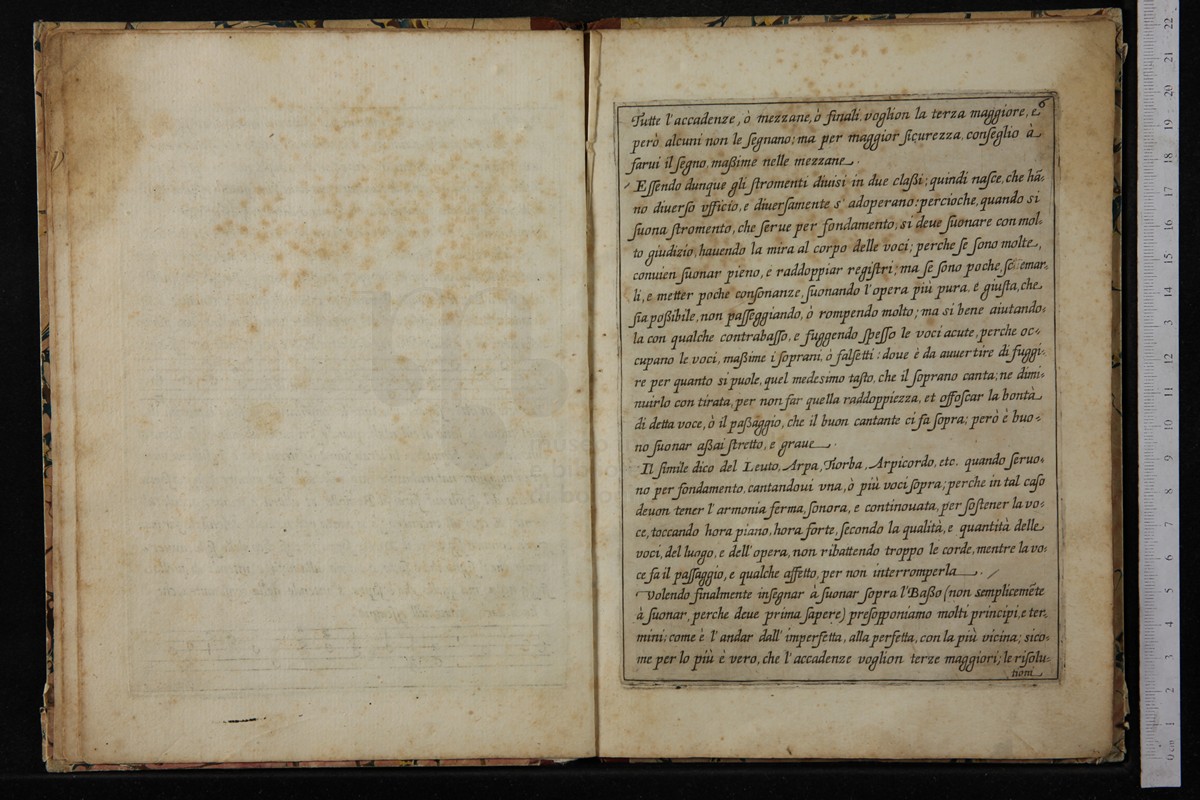 6
Tutte l'accadenze, ò mezzane, ò finali, voglion la terza maggiore, e
però alcuni non le ſegnano; ma per maggior ſicurezza, conſeglio à
farui il ſegno, maßime nelle mezzane.
Eſſendo dunque gli ſtromenti diuisi in due claßi; quindi naſce, che hā-
no diuerſo vfficio, e diuerſamente s'adoperano: percioche, quando si
ſuona ſtromento, che ſerue per fondamento, si deue ſuonare con mol-
to giudizio, hauendo la mira al corpo delle voci; perche ſe ſono molte,
conuien ſuonar pieno, e raddoppiar regiſtri; ma ſe ſono poche, ſcemar-
li, e metter poche conſonanze, ſuonando l'opera più pura, e giuſta, che
ſia poßibile, non paſſeggiando, ò rompendo molto; ma si bene aiutando-
la con qualche contrabaſſo, e fuggendo ſpeſſo le voci acute, perche oc-
cupano le voci, maßime i ſoprani, ò falſetti: doue è da auuertire di fuggi-
re per quanto si puole, quel medesimo taſto, che il ſoprano canta; ne dimi-
nuirlo con tirata, per non far quella raddoppiezza, et offoſcar la bontà
di detta voce, ò il paßaggio, che il buon cantante ci fa ſopra; però è buo-
no ſuonar aßai ſtretto, e graue.
Il ſimile dico del Leuto, Arpa, Tiorba, Arpicordo, etc. quando ſeruo-
no per fondamento, cantandoui vna, ò più voci ſopra; perche in tal caſo
deuon tener l'armonia ferma, ſonora, e continouata, per ſoſtener la vo-
ce, toccando hora piano, hora forte, ſecondo la qualità, e quantità delle
voci, del luogo, e dell'opera, non ribattendo troppo le corde, mentre la vo-
ce fa il paſſaggio, e qualche affetto, per non interromperla.
Volendo finalmente inſegnar à ſuonar ſopra l'Baßo (non semplicemēte
à ſuonar, perche deue prima ſapere) preſopponiamo molti principi, e ter-
mini; come è l'andar dall'imperfetta, alla perfetta, con la più vicina; sico-
me per lo più è vero, che l'accadenze voglion terze maggiori; le riſolu-
tioni
0 cm 1 2 3 4 5 6 7 8 9 10 11 12 13 14 15 16 17 18 19 20 21 22